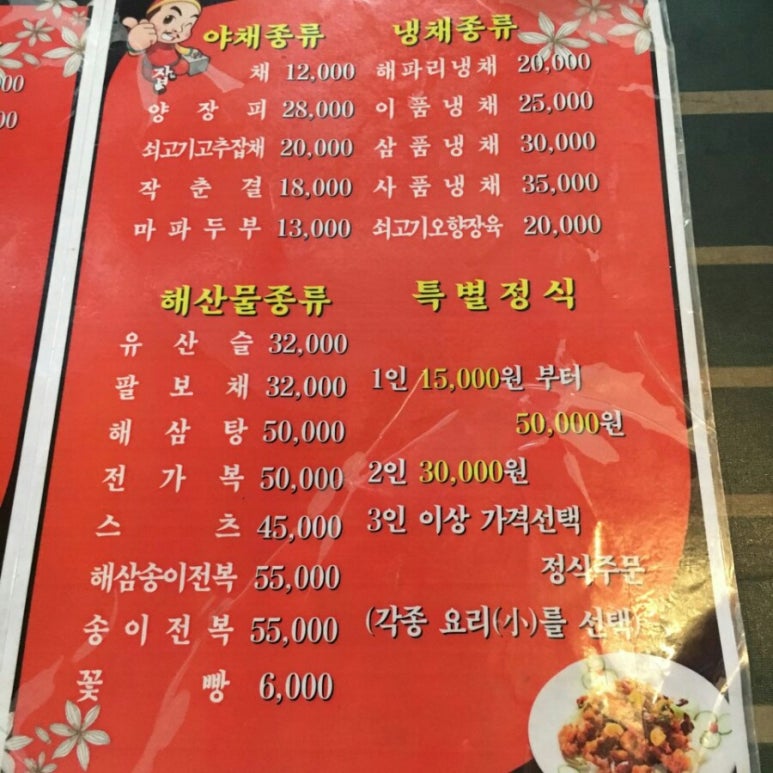 야채종류
잡채 12,000
양장피 28,000
쇠고기고추잡채 20,000
작춘결 18,000
마파두부 13,000
냉채종류
해파리냉채 20,000
이품냉채 25,000
삼품냉채 30,000
사품냉채 35,000
쇠고기오향장육 20,000
해산물종류
유산슬 32,000
팔보채 32,000
해삼탕 50,000
전가복 50,000
스츠 45,000
해삼송이전복 55,000
송이전복 55,000
꽃빵 6,000
특별정식
1인 15,000원 부터
50,000원
2인 30,000원
3인 이상 가격선택
정식주문
(각종 요리(小)를 선택)